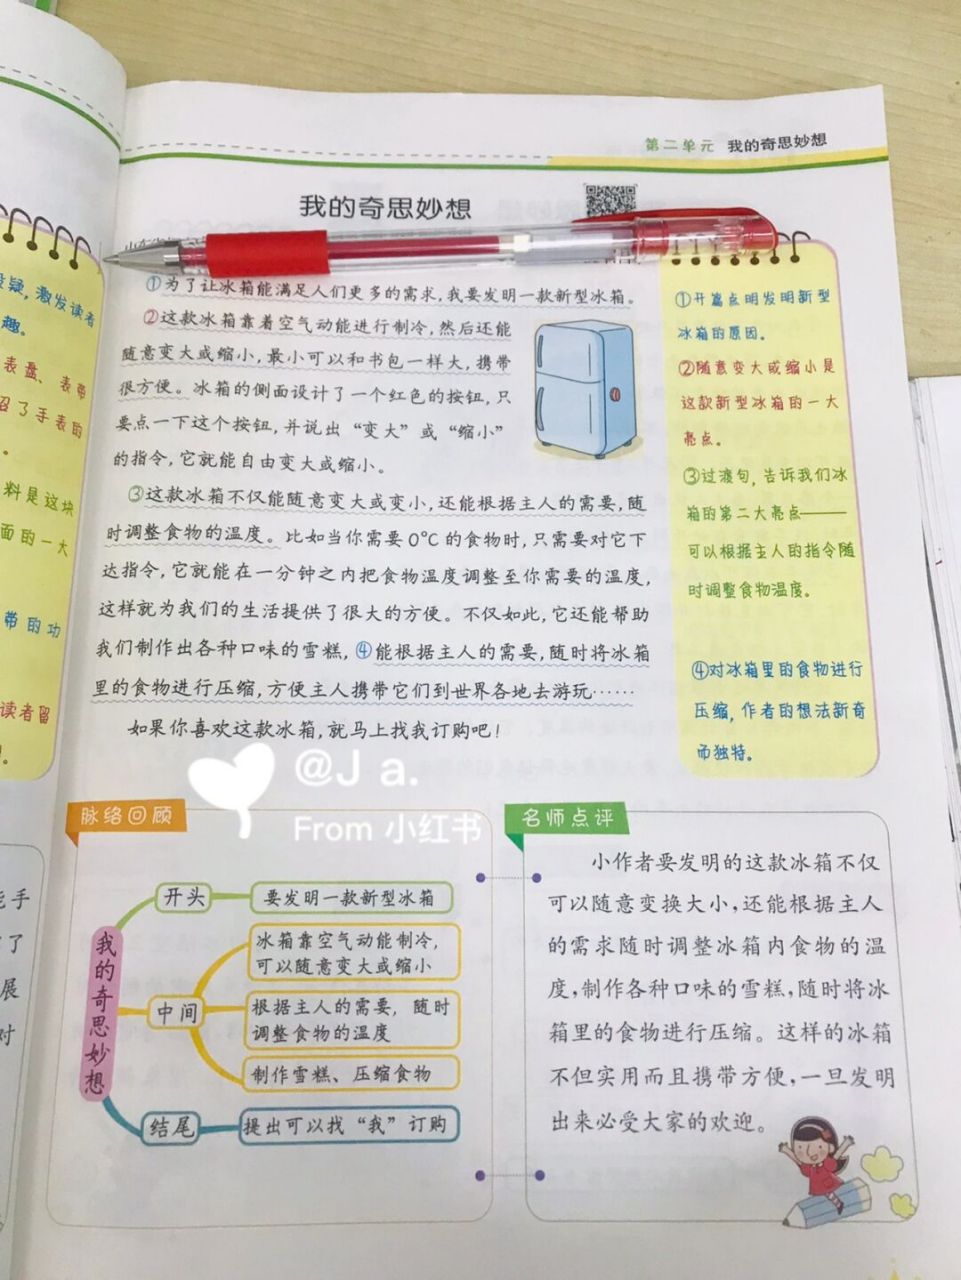 第二单元 我的奇思妙想
我的奇思妙想
①为了让冰箱能满足人们更多的需求,我要发明一款新型冰箱。
②这款冰箱靠着空气动能进行制冷,然后还能
随意变大或缩小,最小可以和书包一样大,携带
很方便。冰箱的侧面设计了一个红色的按钮,只
要点一下这个按钮,并说出“变大”或“缩小”
的指令,它就能自由变大或缩小。
③这款冰箱不仅能随意变大或变小,还能根据主人的需要,随
时调整食物的温度。比如当你需要0℃的食物时,只需要对它下
达指令,它就能在一分钟之内把食物温度调整至你需要的温度,
这样就为我们的生活提供了很大的方便。不仅如此,它还能帮助
我们制作出各种口味的雪糕,④能根据主人的需要,随时将冰箱
里的食物进行压缩,方便主人携带它们到世界各地去游玩……
如果你喜欢这款冰箱,就马上找我订购吧!
①开篇点明发明新型
冰箱的原因。
②随意变大或缩小是
这款新型冰箱的一大
亮点。
③过渡句,告诉我们冰
箱的第二大亮点——
可以根据主人的指令随
时调整食物温度。
④对冰箱里的食物进行
压缩,作者的想法新奇
而独特。
激发读者
趣。
表盘、表带
召了手表的
料是这块
面的一大
带的功
读者留
能手
了
展
对
@J a.
From 小红书
脉络回顾
我的奇思妙想
开头
要发明一款新型冰箱
中间
冰箱靠空气动能制冷,
可以随意变大或缩小
根据主人的需要,随时
调整食物的温度
制作雪糕、压缩食物
结尾
提出可以找“我”订购
名师点评
小作者要发明的这款冰箱不仅
可以随意变换大小,还能根据主人
的需求随时调整冰箱内食物的温
度,制作各种口味的雪糕,随时将冰
箱里的食物进行压缩。这样的冰箱
不但实用而且携带方便,一旦发明
出来必受大家的欢迎。